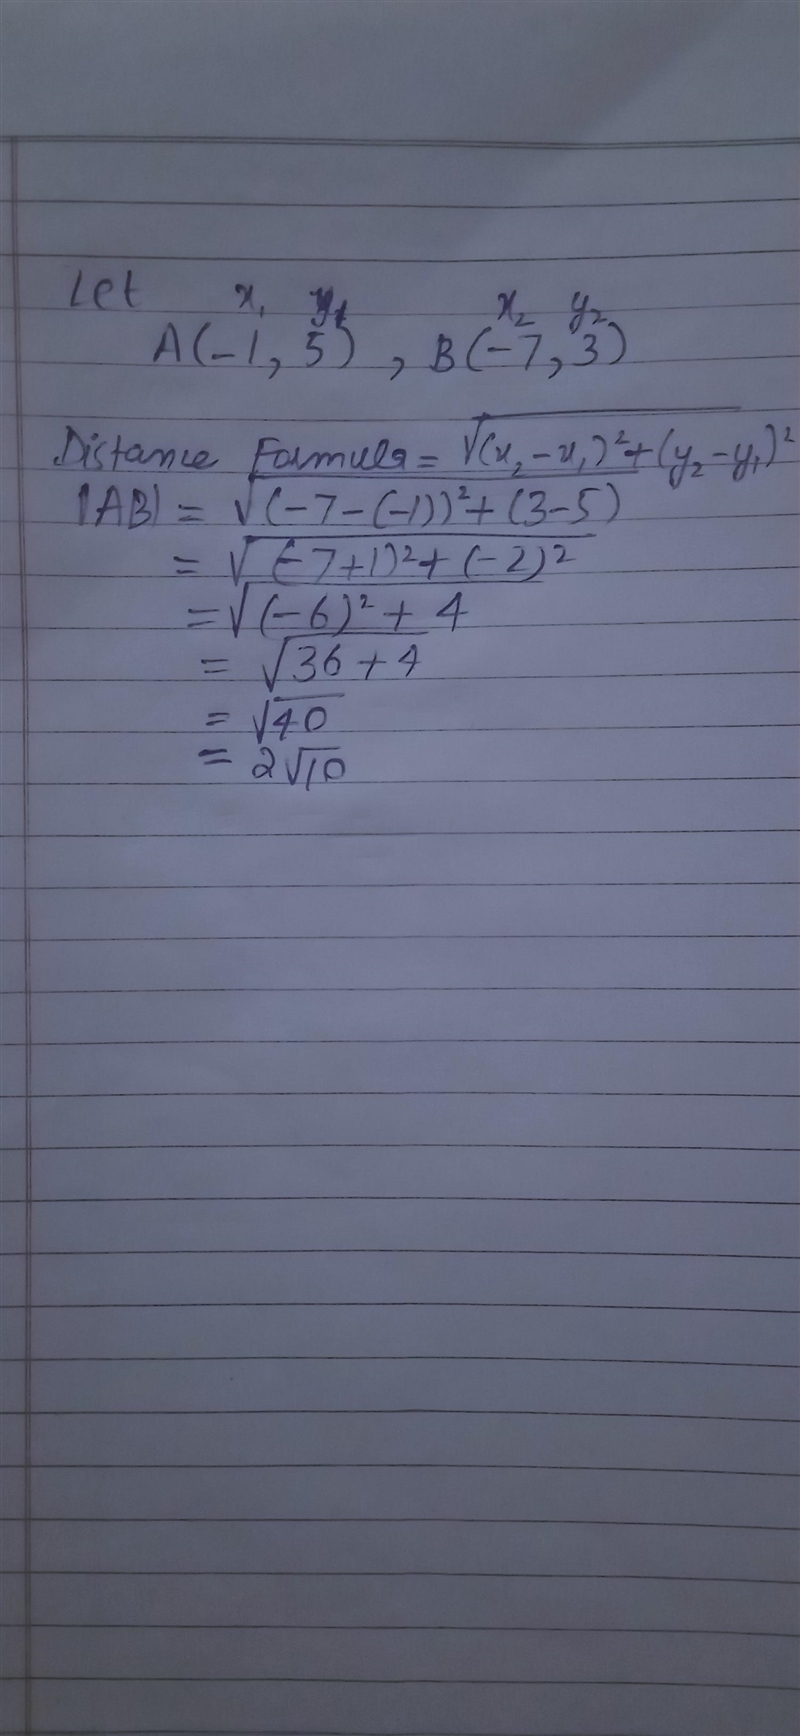 Let x₁ y₁ x₂ y₂
A(-1, 5) , B(-7, 3)
Distance Formula = √(x₂-x₁)²+(y₂-y₁)²
|AB| = √(-7-(-1))²+(3-5)
= √(-7+1)²+(-2)²
= √(-6)² + 4
= √36+4
= √40
= 2√10